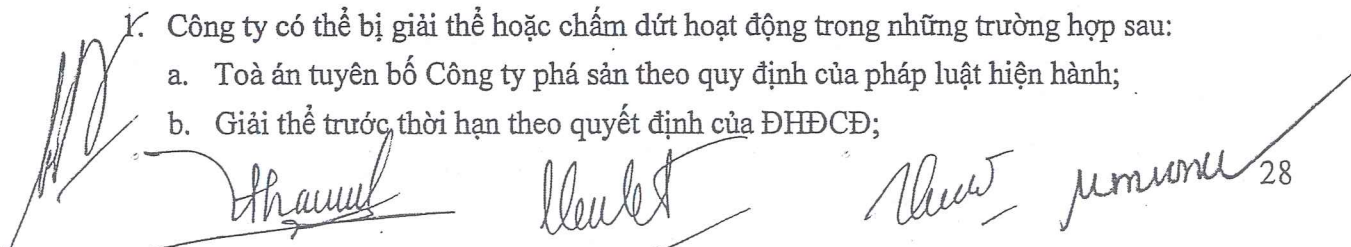 1. Công ty có thể bị giải thể hoặc chấm dứt hoạt động trong những trường hợp sau:
a. Toà án tuyên bố Công ty phá sản theo quy định của pháp luật hiện hành;
b. Giải thể trước thời hạn theo quyết định của ĐHĐCĐ;
28